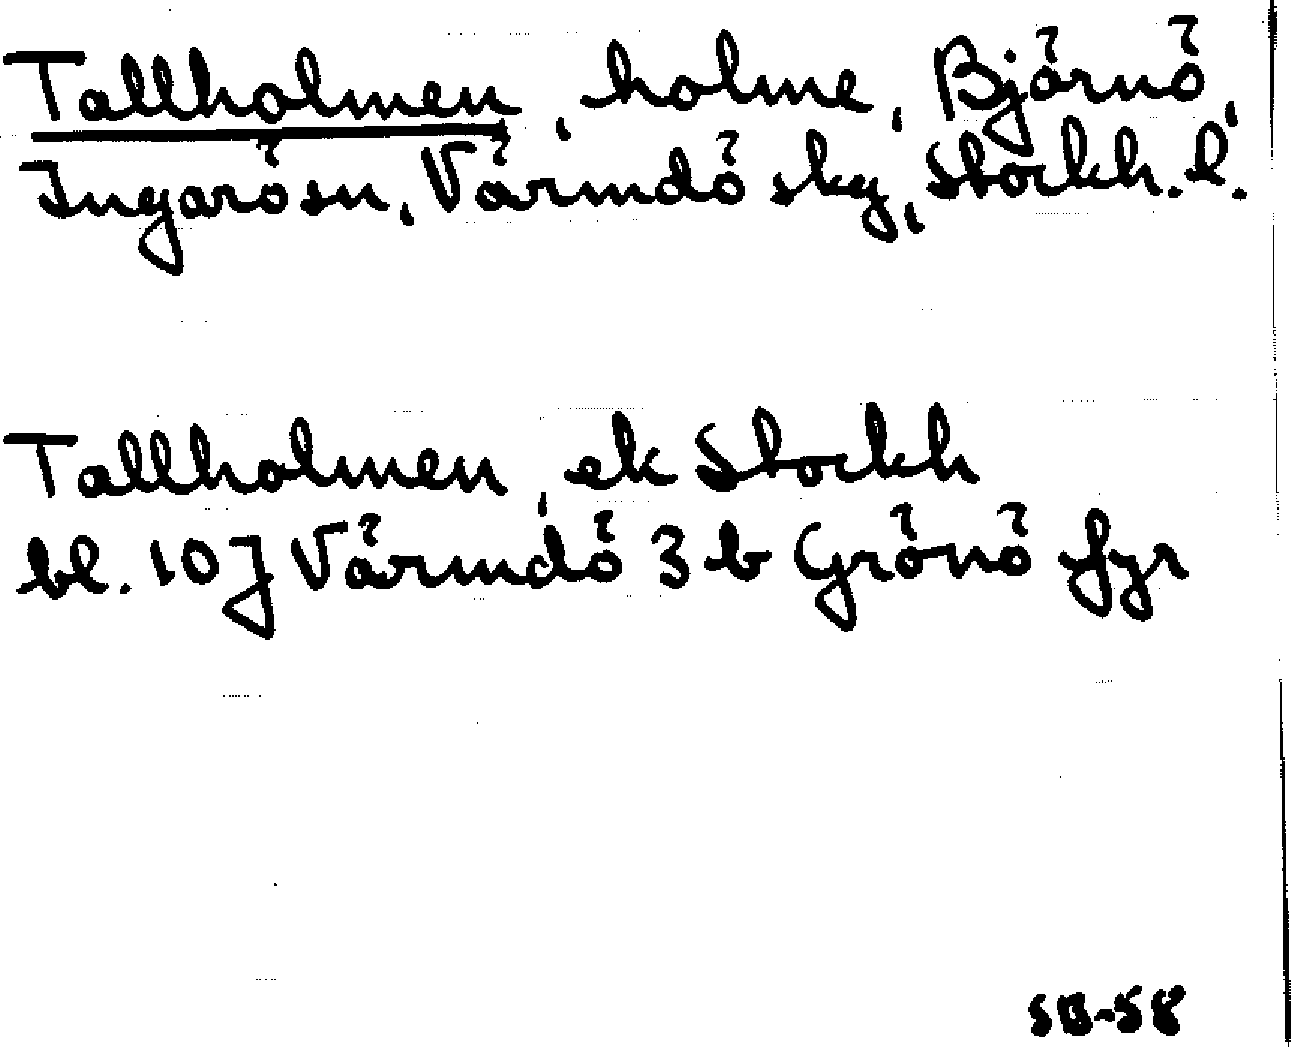 Tallholmen, holme, Björnö,
Ingarö sn, Värmdö skg, Stockh. l.
Tallholmen, ek Stockh
bl. 10J Värmdö 3 b Grönö fyr
SB-58